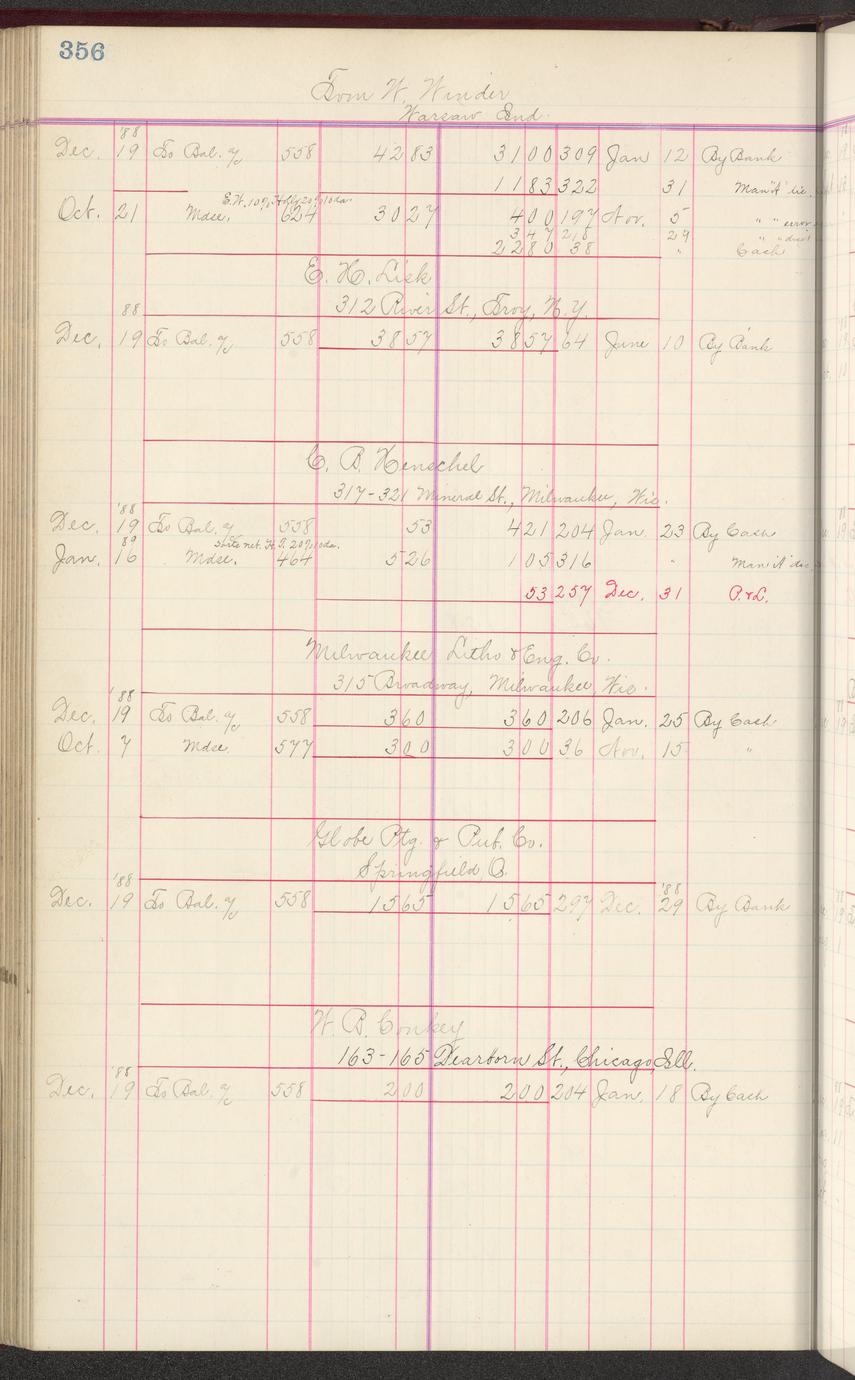 356
Tom W. Winder
Warsaw Ind.
'88
Dec. 19 To Bal. % 558 42 83 31 00 309 Jan 12 By Bank
11 83 322 31 Man'f'
E.W. 10% Holly 20% 10 da.
Oct. 21 Mdse. 624 30 27 4 00 197 Nov. 5 " " error
3 47 218 29 " " disct
22 80 38 " Cash
E. H. Lisk
312 River St., Troy, N.Y.
88
Dec. 19 To Bal. % 558 38 57 38 57 64 June 10 By Bank
C. B. Henschel
317-321 Mineral St., Milwaukee, Wis.
'88
Dec. 19 To Bal. % 558 53 4 21 204 Jan. 23 By Cash
89 net. H. T. 20% 10 da.
Jan. 16 Mdse. 464 5 26 1 05 316 "
53 257 Dec. 31 P. & L.
Milwaukee Litho & Eng. Co.
315 Broadway, Milwaukee, Wis.
'88
Dec. 19 To Bal. % 558 3 60 3 60 206 Jan. 25 By Cash
Oct. 7 Mdse. 577 3 00 3 00 36 Nov. 15 "
Globe Ptg. & Pub. Co.
Springfield O.
'88 '88
Dec. 19 To Bal. % 558 15 65 15 65 297 Dec. 29 By Bank
W. B. Conkey
163-165 Dearborn St., Chicago, Ill.
'88
Dec. 19 To Bal. % 558 2 00 2 00 204 Jan. 18 By Cash